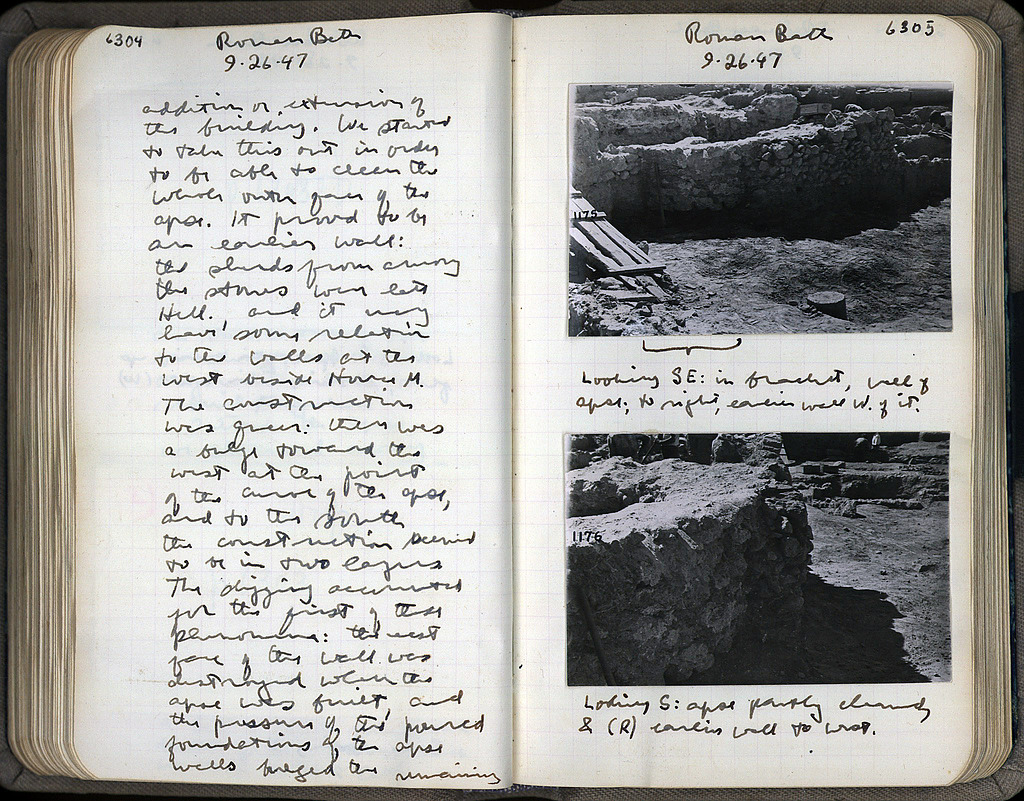 6304
Roman Bath
9·26·47
addition or extension of
the building. We started
to take this out in order
to be able to clean the
whole outer face of the
apse. It proved to be
an earlier wall:
the sherds from among
the stones were late
Hell. and it may
have some relation
to the walls at the
west beside House M.
The construction
was queer: there was
a bulge toward the
west at the point
of the curve of the apse,
and to the south
the construction seemed
to be in two layers
The digging accounted
for the first of these
phenomena: the east
face of the wall was
destroyed when the
apse was built, and
the pressure of the poured
foundations of the apse
walls bulged the remaining
6305
Roman Bath
9·26·47
1175
Looking SE: in bracket, wall of
apse; to right, earlier wall W. of it.
1176
Looking S: apse partly cleared,
& (R) earlier wall to west.